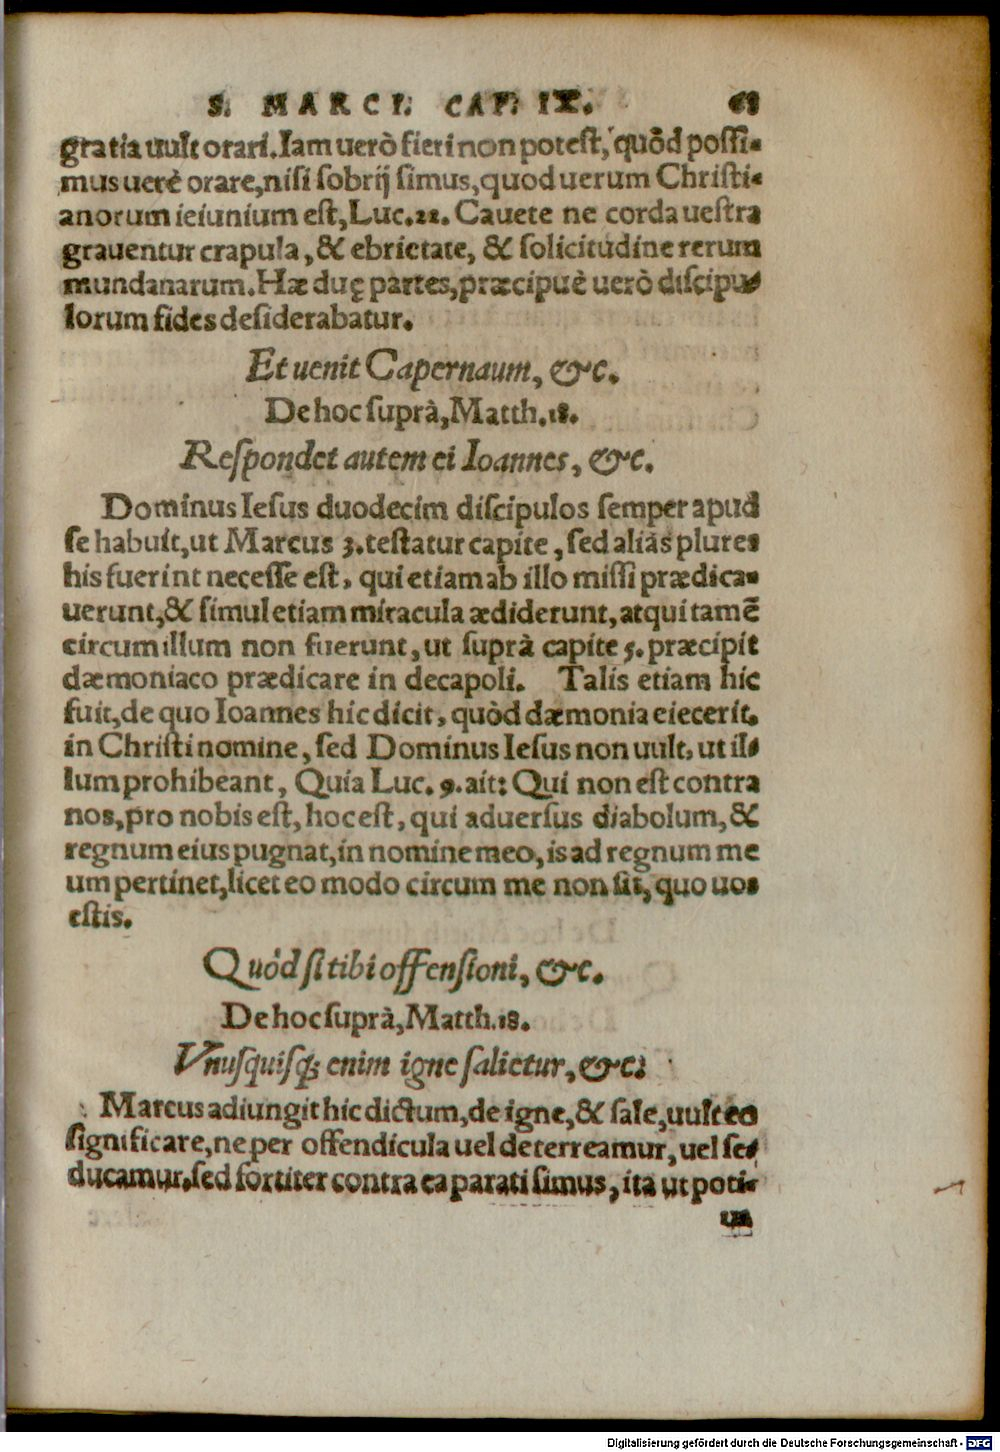 S. MARCI. CAP. IX.
gratia uult orari. Iam uerò fieri non potest, quòd possi-
mus uerè orare, nisi sobrij simus, quod uerum Christi-
anorum ieiunium est, Luc. 21. Cauete ne corda uestra
grauentur crapula, & ebrietate, & solicitudine rerum
mundanarum. Hæ duę partes, præcipuè uerò discipu-
lorum fides desiderabatur.
Et uenit Capernaum, &c.
De hoc suprà, Matth. 18.
Respondet autem ei Ioannes, &c.
Dominus Iesus duodecim discipulos semper apud
se habuit, ut Marcus 3. testatur capite, sed aliàs plures
his fuerint necesse est, qui etiam ab illo missi prædica-
uerunt, & simul etiam miracula ædiderunt, atqui tamẽ
circum illum non fuerunt, ut suprà capite 5. præcipit
dæmoniaco prædicare in decapoli. Talis etiam hic
fuit, de quo Ioannes hic dicit, quòd dæmonia eiecerit,
in Christi nomine, sed Dominus Iesus non uult, ut il-
lum prohibeant, Quia Luc. 9. ait: Qui non est contra
nos, pro nobis est, hoc est, qui aduersus diabolum, &
regnum eius pugnat, in nomine meo, is ad regnum me
um pertinet, licet eo modo circum me non sit, quo uos
estis.
Quòd si tibi offensioni, &c.
De hoc suprà, Matth. 18.
Vnusquisq; enim igne salietur, &c.
Marcus adiungit hic dictum, de igne, & sale, uult eo
significare, ne per offendicula uel deterreamur, uel se-
ducamur, sed fortiter contra ea parati simus, ita ut poti-
us
Digitalisierung gefördert durch die Deutsche Forschungsgemeinschaft - DFG